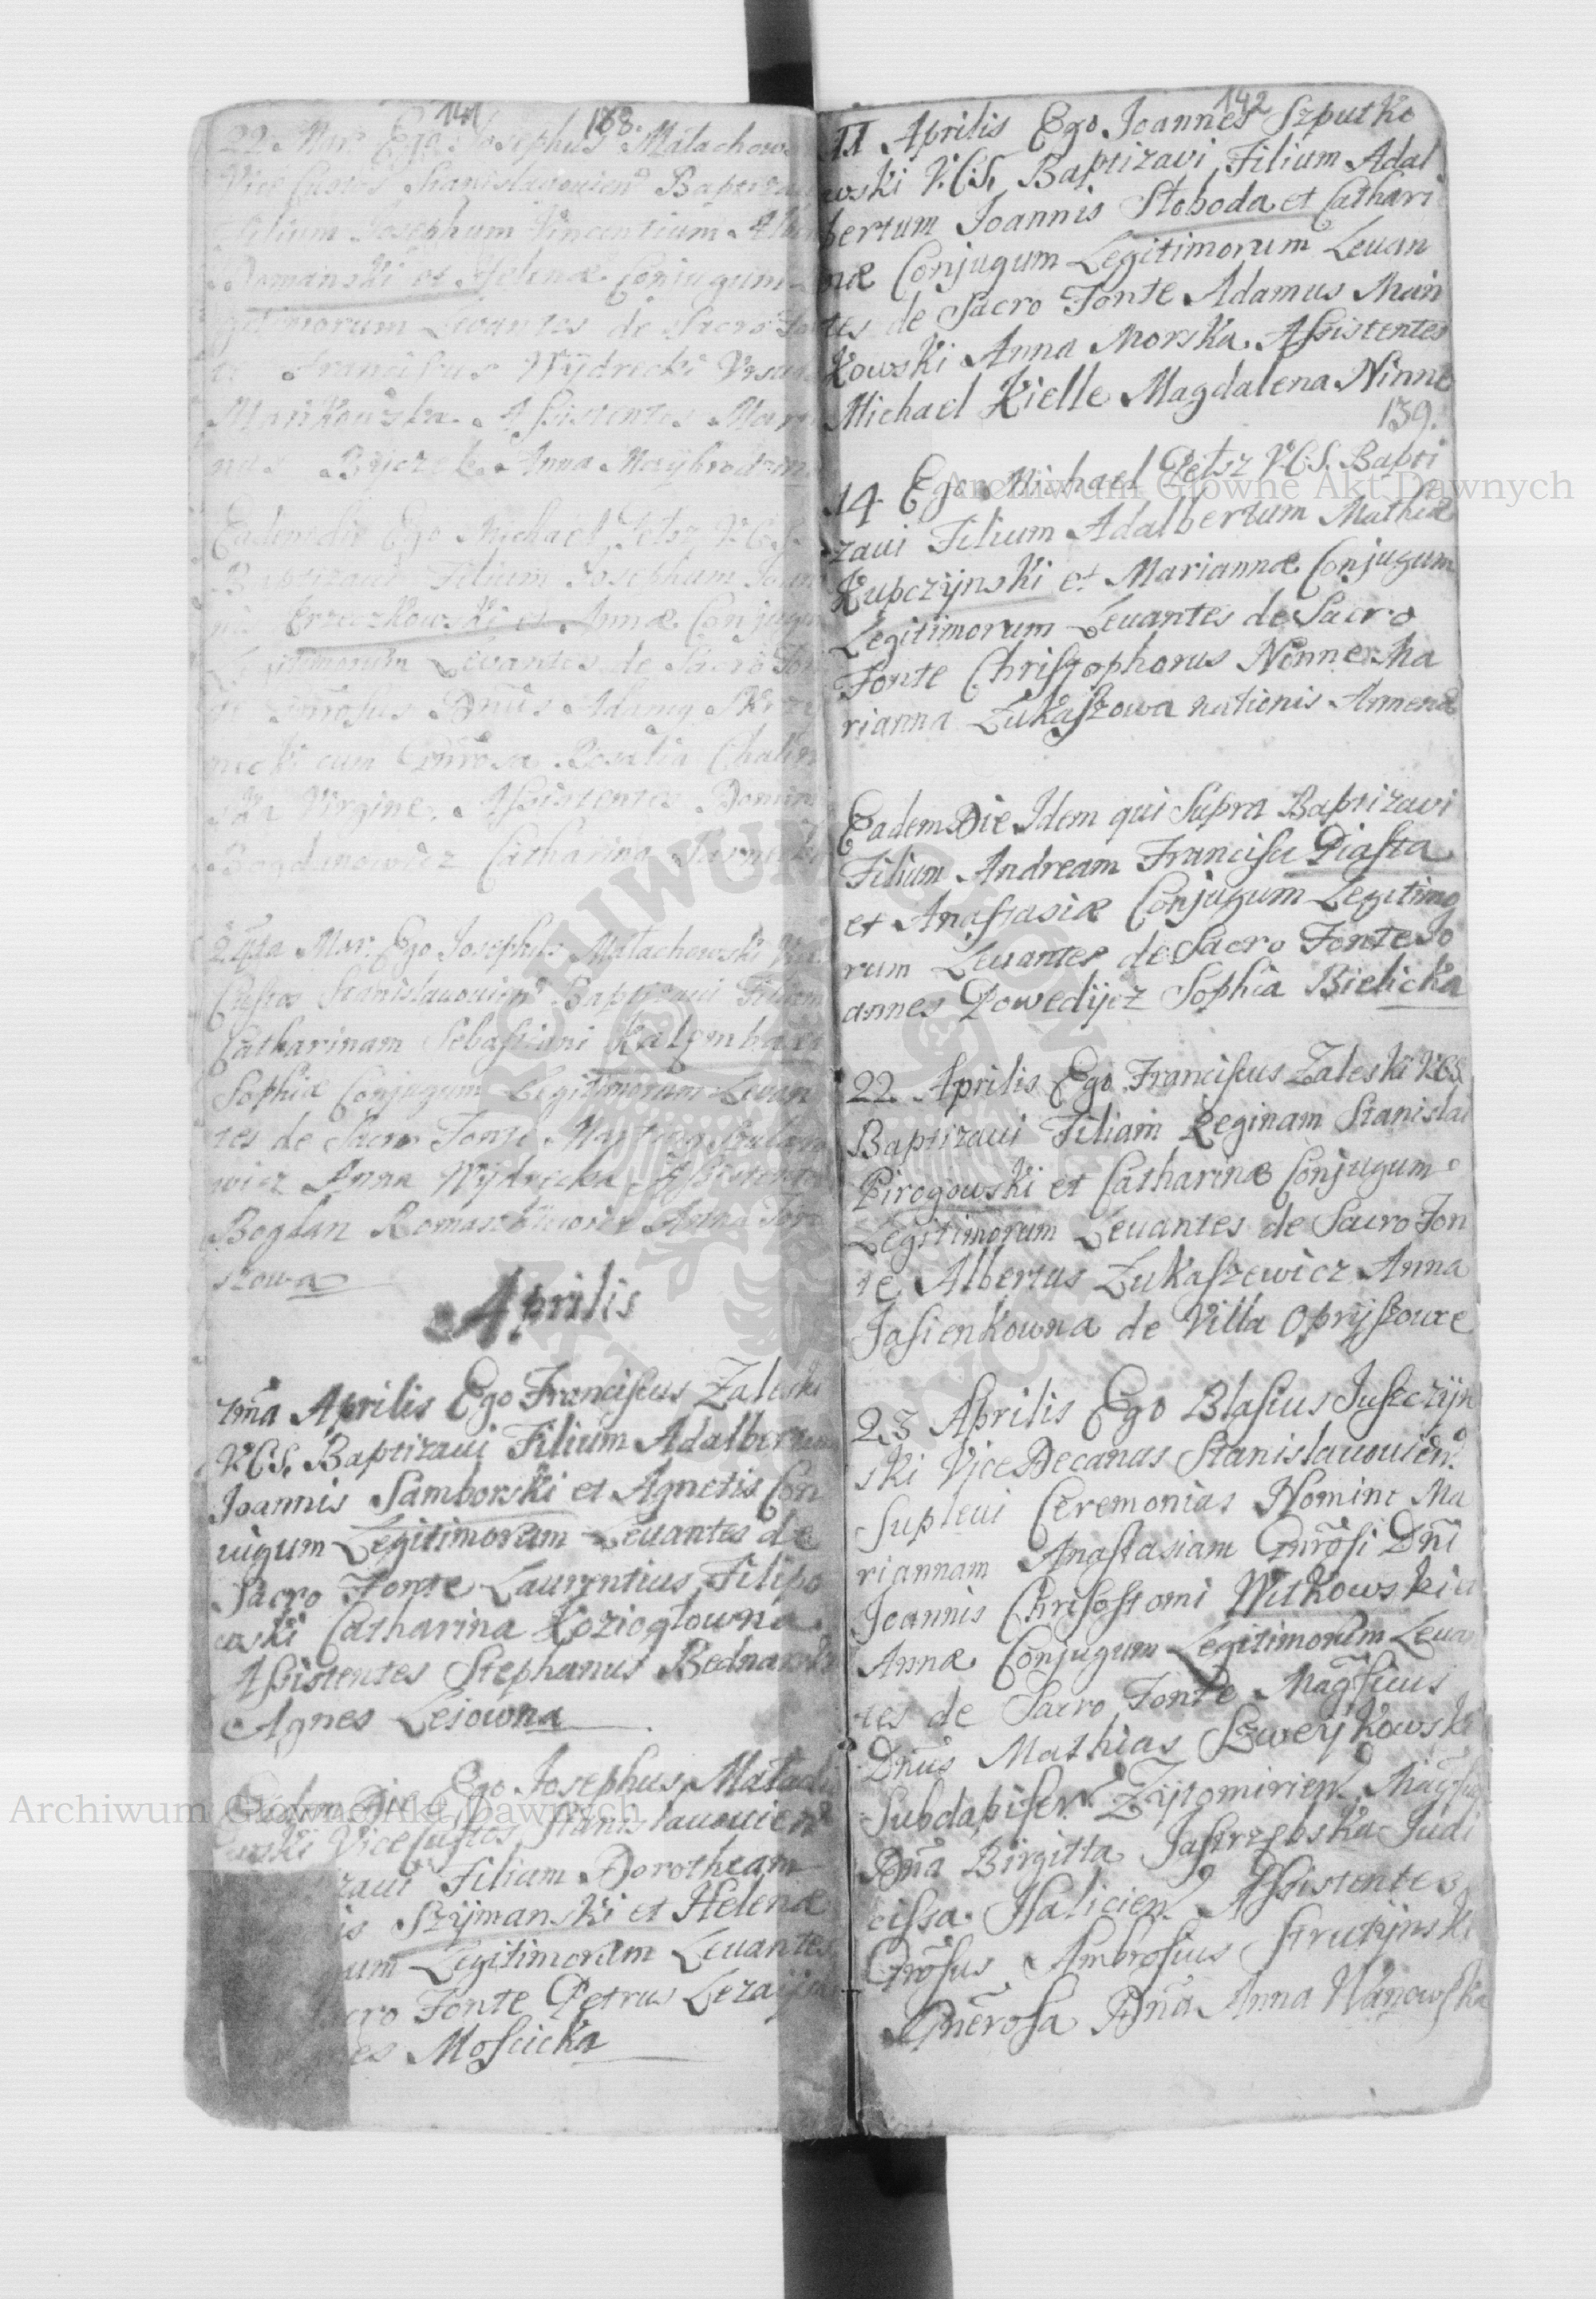 141
188.
22 Mar. Ego Josephus Małachow
Vice Custos Stanislauouien Baptizau
Filium Josephum Vincentium Alber
Domanski et Helenæ Conjugum
gitimorum Leuantes de Sacro Fon
te Franciscus Wÿdrecki
Mańkowska. Assistentes Mar
Anna
Eadem die Ego Michael Petsz V.C.S.
Baptizaui Filium Josephum Joan
nis et Annæ Conjugu
Legitimorum Levantes de Sacro Fon
te Gnrosus Dnus Adam
necki cum Gnrosa Rosalia Chalin
ska Virgine. Assistentes Domin
Bogdanowicz Catharina
Mar. Ego Josephus Małachowski Vice
Custos Stanislauouien Baptizaui Filiam
Catharinam Sebastiani Kalemba et
Sophiæ Conjugum Legitimorum Leuan
tes de Sacro Fonte
wicz Anna Wÿdrecka Assistentes
Bogdan Anna
szowa
Aprilis
1ma Aprilis Ego Franciscus Zaleski
V.C.S. Baptizaui Filium Adalbertum
Joannis Samborski et Agnetis Con
iugum Legitimorum Leuantes de
Sacro Fonte Laurentius Filipo
wski Catharina Koziogłowna
Assistentes Stephanus Bednarski
Agnes Leiowna
Eadem Die Ego Josephus Małach
owski Vice Custos Stanislauouien
zaui Filiam Dorotheam
is Szÿmanski et Helenæ
um Legitimorum Leuantes
cro Fonte Petrus
es Moscicka
142
11 Aprilis Ego Joannes Szputko
wski V.C.S. Baptizavi Filium Adal
bertum Joannis Słoboda et Cathari
næ Conjugum Legitimorum Leuan
tes de Sacro Fonte Adamus Mań
kowski Anna Morska. Assistentes
Michael Kielle Magdalena Ninne
139.
14 Ego Michael Petsz V.C.S. Bapti
zaui Filium Adalbertum Mathiæ
Kupczÿnski et Mariannæ Conjugum
Legitimorum Leuantes de Sacro
Fonte Christophorus Ninner Ma
rianna Łukaszowa nationis Armenæ
Eadem Die Idem qui Supra Baptizavi
Filium Andream Francisci Piasta
et Anastasiæ Conjugum Legitimo
rum Leuantes de Sacro Fonte Jo
annes Dowedÿcz Sophia Bielicka
22 Aprilis Ego Franciscus Zaleski V.C.S.
Baptizaui Filiam Reginam Stanislai
Pirogowski et Catharinæ Conjugum
Legitimorum Leuantes de Sacro Fon
te Albertus Łukaszewicz Anna
Jasienkowna de Villa Oprÿszowce
23 Aprilis Ego Blasius Juszczÿn
ski Vice Decanus Stanislauouien.
Supleui Ceremonias Nomine Ma
riannam Anastasiam Gnrosi Dni
Joannis Chrisostomi Witkowski et
Annæ Conjugum Legitimorum Leuan
tes de Sacro Fonte Magficus
Dnus Mathias Szweÿkowski
Subdapifer Zÿtomirien. Magfica
Dna Birgitta Jastrzębska Judi
cissa Halicien. Assistentes
Gnrosus Ambrosius Strutÿnski
Gnerosa Dna Anna
Archiwum Główne Akt Dawnych
Archiwum Główne Akt Dawnych